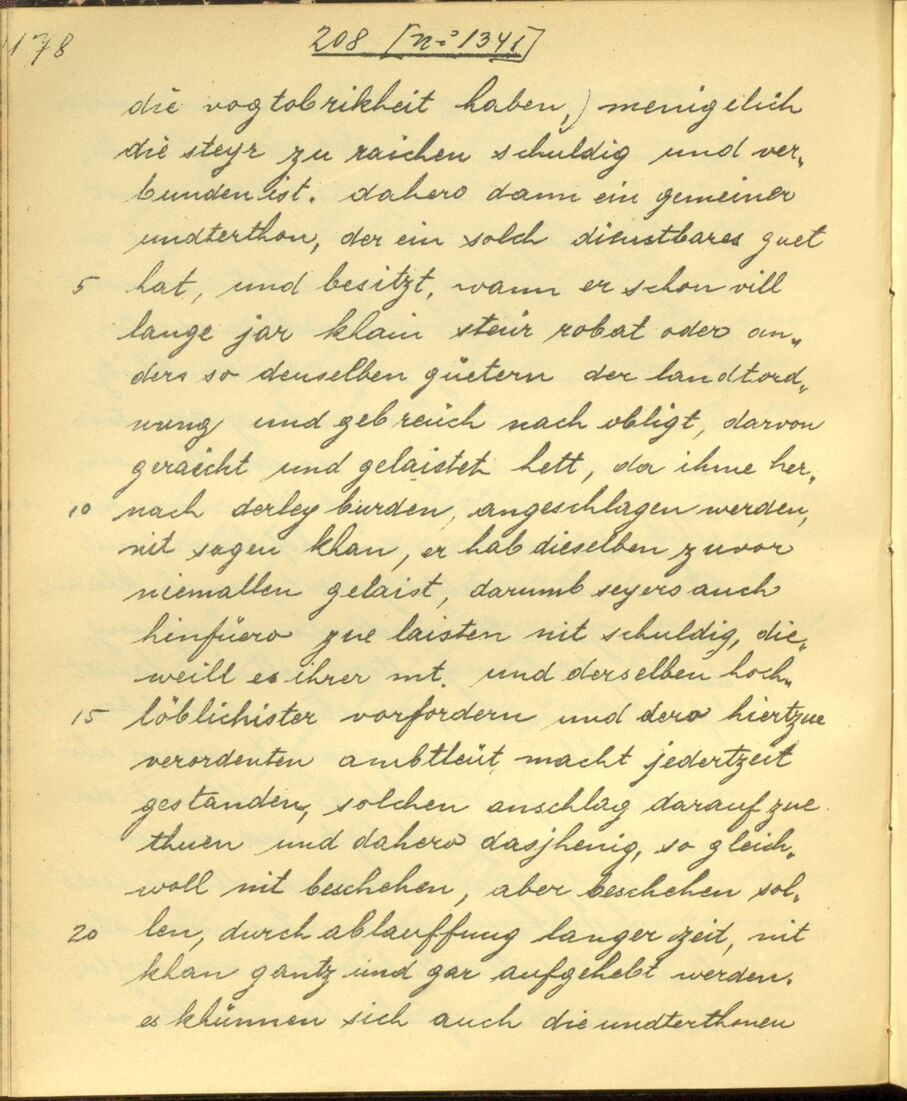 178
208 [No 1341]
die vogtobrikheit haben,) menigelich
die steyr zu raichen schuldig und ver„
bunden ist. dahero dann ein gemeiner
undterthon, der ein solch dienstbares guet
5 hat, und besitzt, wann er schon vill
lange jar khain steür robat oder an„
ders so denselben güetern der landtord„
nung und gebreüch nach obligt, darvon
geraicht und gelaistet hett, da ihme her„
10 nach derley burden, angeschlagen werden,
nit sagen khan, er hab dieselben zuvor
niemallen gelaist, darumb seyers auch
hinfüero zue laisten nit schuldig, die„
weill es ihrer mt. und derselben hoch„
15 löblichister vorfordern und dero hiertzue
verordenten ambtleüt macht jedertzeit
gestanden, solchen anschlag darauf zue
thuen und dahero dasjhenig, so gleich„
woll nit beschehen, aber beschehen sol„
20 len, durch ablauffung langer zeit, nit
khan gantz und gar aufgehebt werden.
es khünnen sich auch die undterthonen